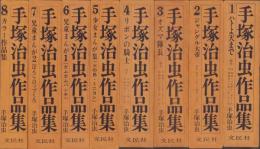 手塚治虫作品集 1 ハトよ天まで 手塚治虫 文民社
手塚治虫作品集 2 ジャングル大帝 手塚治虫 文民社
手塚治虫作品集 3 オズマ隊長 手塚治虫 文民社
手塚治虫作品集 4 リボンの騎士 手塚治虫 文民社
手塚治虫作品集 5 少女まんが集 手塚治虫 文民社
手塚治虫作品集 6 児童まんが1 手塚治虫 文民社
手塚治虫作品集 7 児童まんが2 手塚治虫 文民社
手塚治虫作品集 8 カラー作品集 手塚治虫 文民社